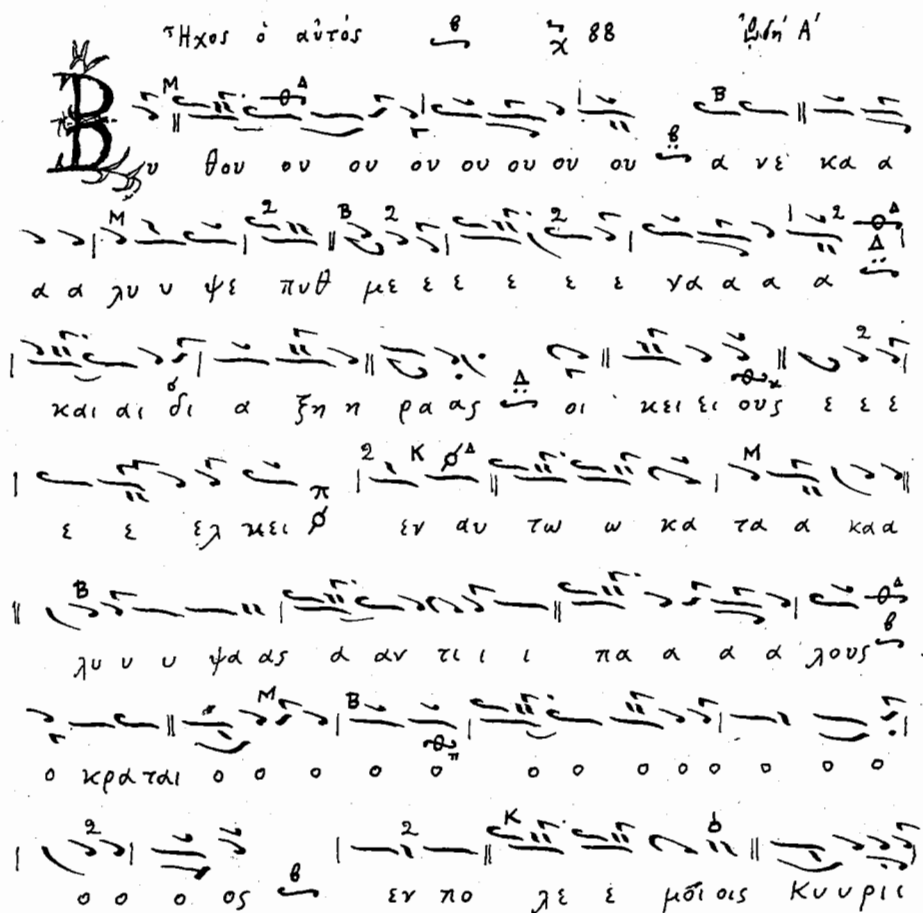 Ἦχος ὁ αὐτός χ 88 ᾨδή Α΄
Βυ θου ου ου ου ου ου ου ου α νε κα α
α α λυ υ ψε πυθ με ε ε ε ε ε να α α α
και αι δι α ξη η ρα ας οι κει ει ους ε ε ε
ε ε ελ κει εν αυ τω ω κα τα α κα α
λυ υ υ ψα ας α αν τι ι ι πα α α α λους
ο κρα ται ο ο ο ο ο ο ο ο ο ο ο ο ο
ο ο ο ος εν πο λε ε μοι οις Κυ υ ρι ι